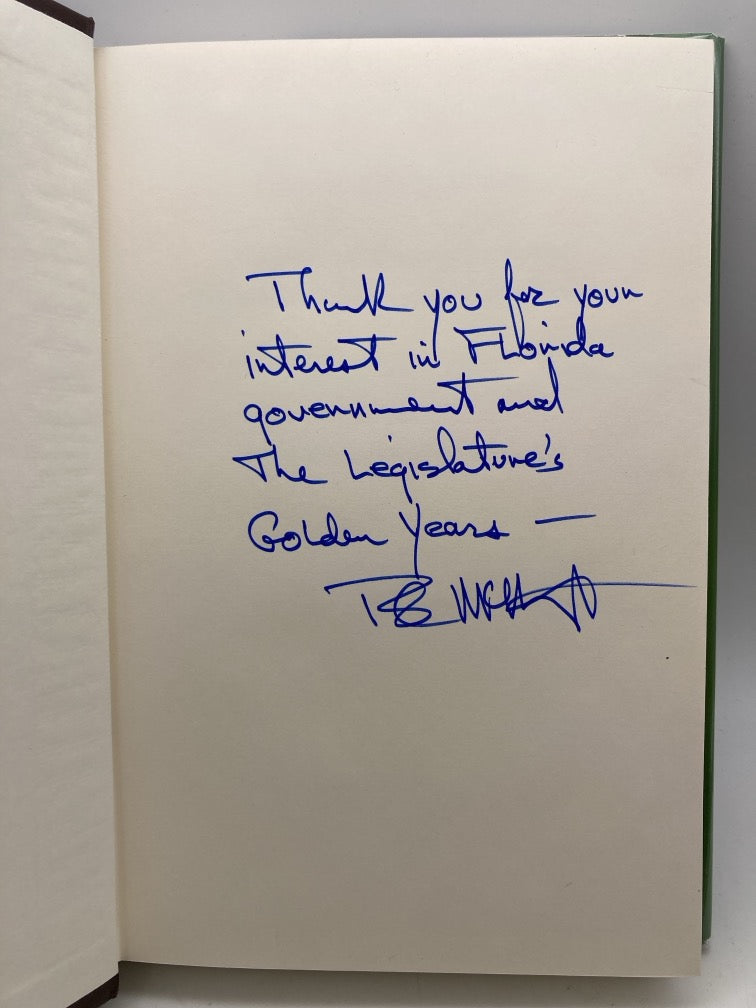 Thank you for your
interest in Florida
government and
The Legislature's
Golden Years —